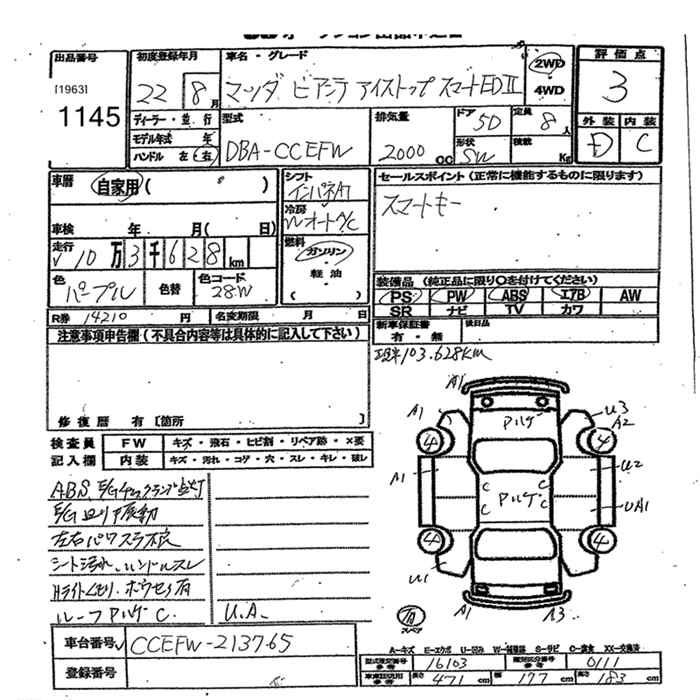 出品番号
[1963]
1145
初度登録年月
22 8月
車名・グレード
マツダ ビアンテ アイストップ スマートED II
2WD
4WD
評価点
3
外装 内装
D C
ディーラー・並行
モデル年式 年
ハンドル 左 右
型式
DBA-CCEFW
排気量
2000 cc
ドア 5D
形状 SW
定員 8人
積載 Kg
車歴
自家用 ( )
車検 年 月 ( 日)
走行
10万3千628km
色
パープル
色替
色コード
28W
R券 14210 円
名変期限 月 日
シフト
インパネAT
冷房
WオートA/C
燃料
ガソリン
軽油
( )
セールスポイント (正常に機能するものに限ります)
スマートキー
装備品 (純正品に限り○を付けてください)
PS PW ABS エアB AW
SR ナビ TV カワ
新車保証書
有・無
後日品
103.628KM
注意事項申告欄 (不具合内容等は具体的に記入して下さい)
修復歴 有 [箇所
検査員 FW キズ・飛石・ヒビ割・リペア跡・×要
記入欄 内装 キズ・汚れ・コゲ・穴・スレ・キレ・破レ
ABS, E/Gチェックランプ点灯
E/G 振動
左右パワスラ不良
シート汚れ、ハンドルスレ
Hライトくもり、
ルーフ アルゲ C
U.A.
A1
アルゲ
A1
U3
A2
4
4
A1
U2
C
C
アルゲ
C
C
UA1
4
4
U1
A1
A3
有
スペア
車台番号 CCEFW-213765
登録番号
A-キズ E-エクボ U-凹み W-補修跡 S-サビ C-腐食 XX-交換済
型式指定番号 参考 16103
類別区分番号 参考 0111
車車証記用 参考 長さ 471cm 幅 177cm 高さ 183cm